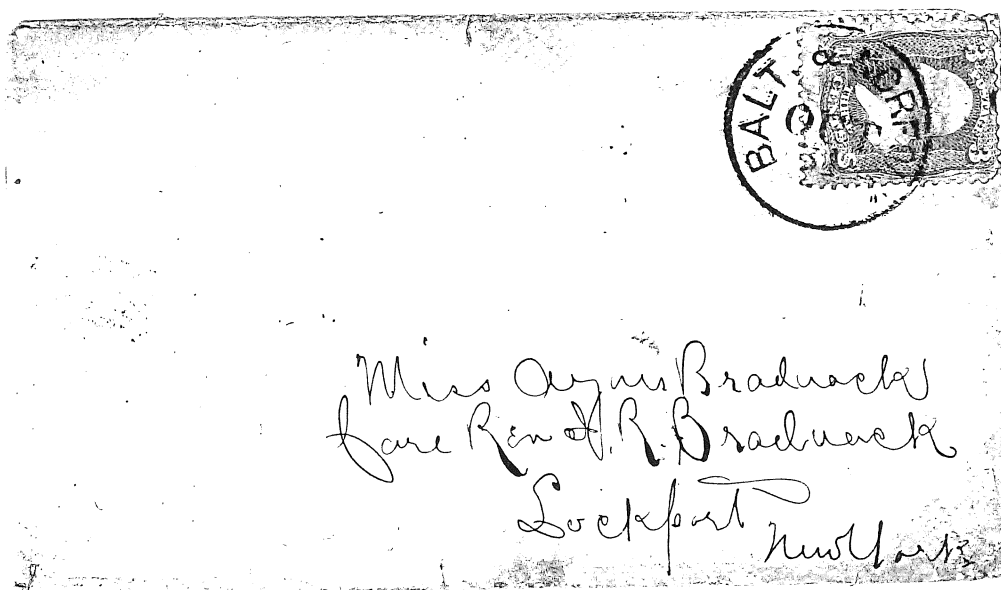 BALT. &
Miss Agnes Bradnack
Care Rev I. R. Bradnack
Lockport
New York